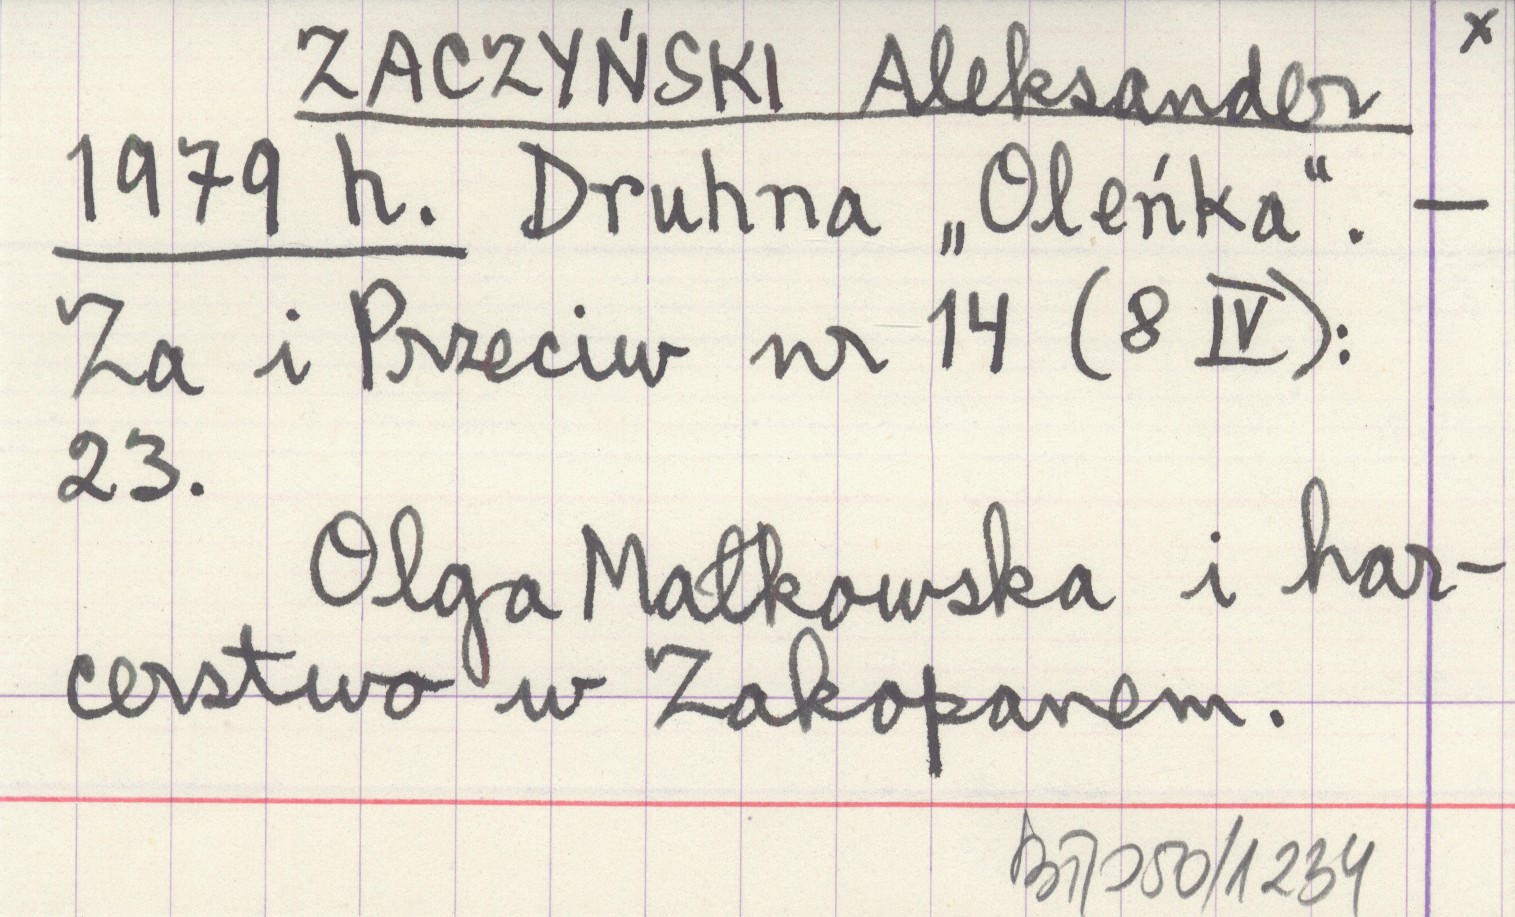 x
ZACZYŃSKI Aleksander
1979 h. Druhna „Oleńka”. —
Za i Przeciw nr 14 (8 IV):
23.
Olga Małkowska i har-
cerstwo w Zakopanem.
50/1234